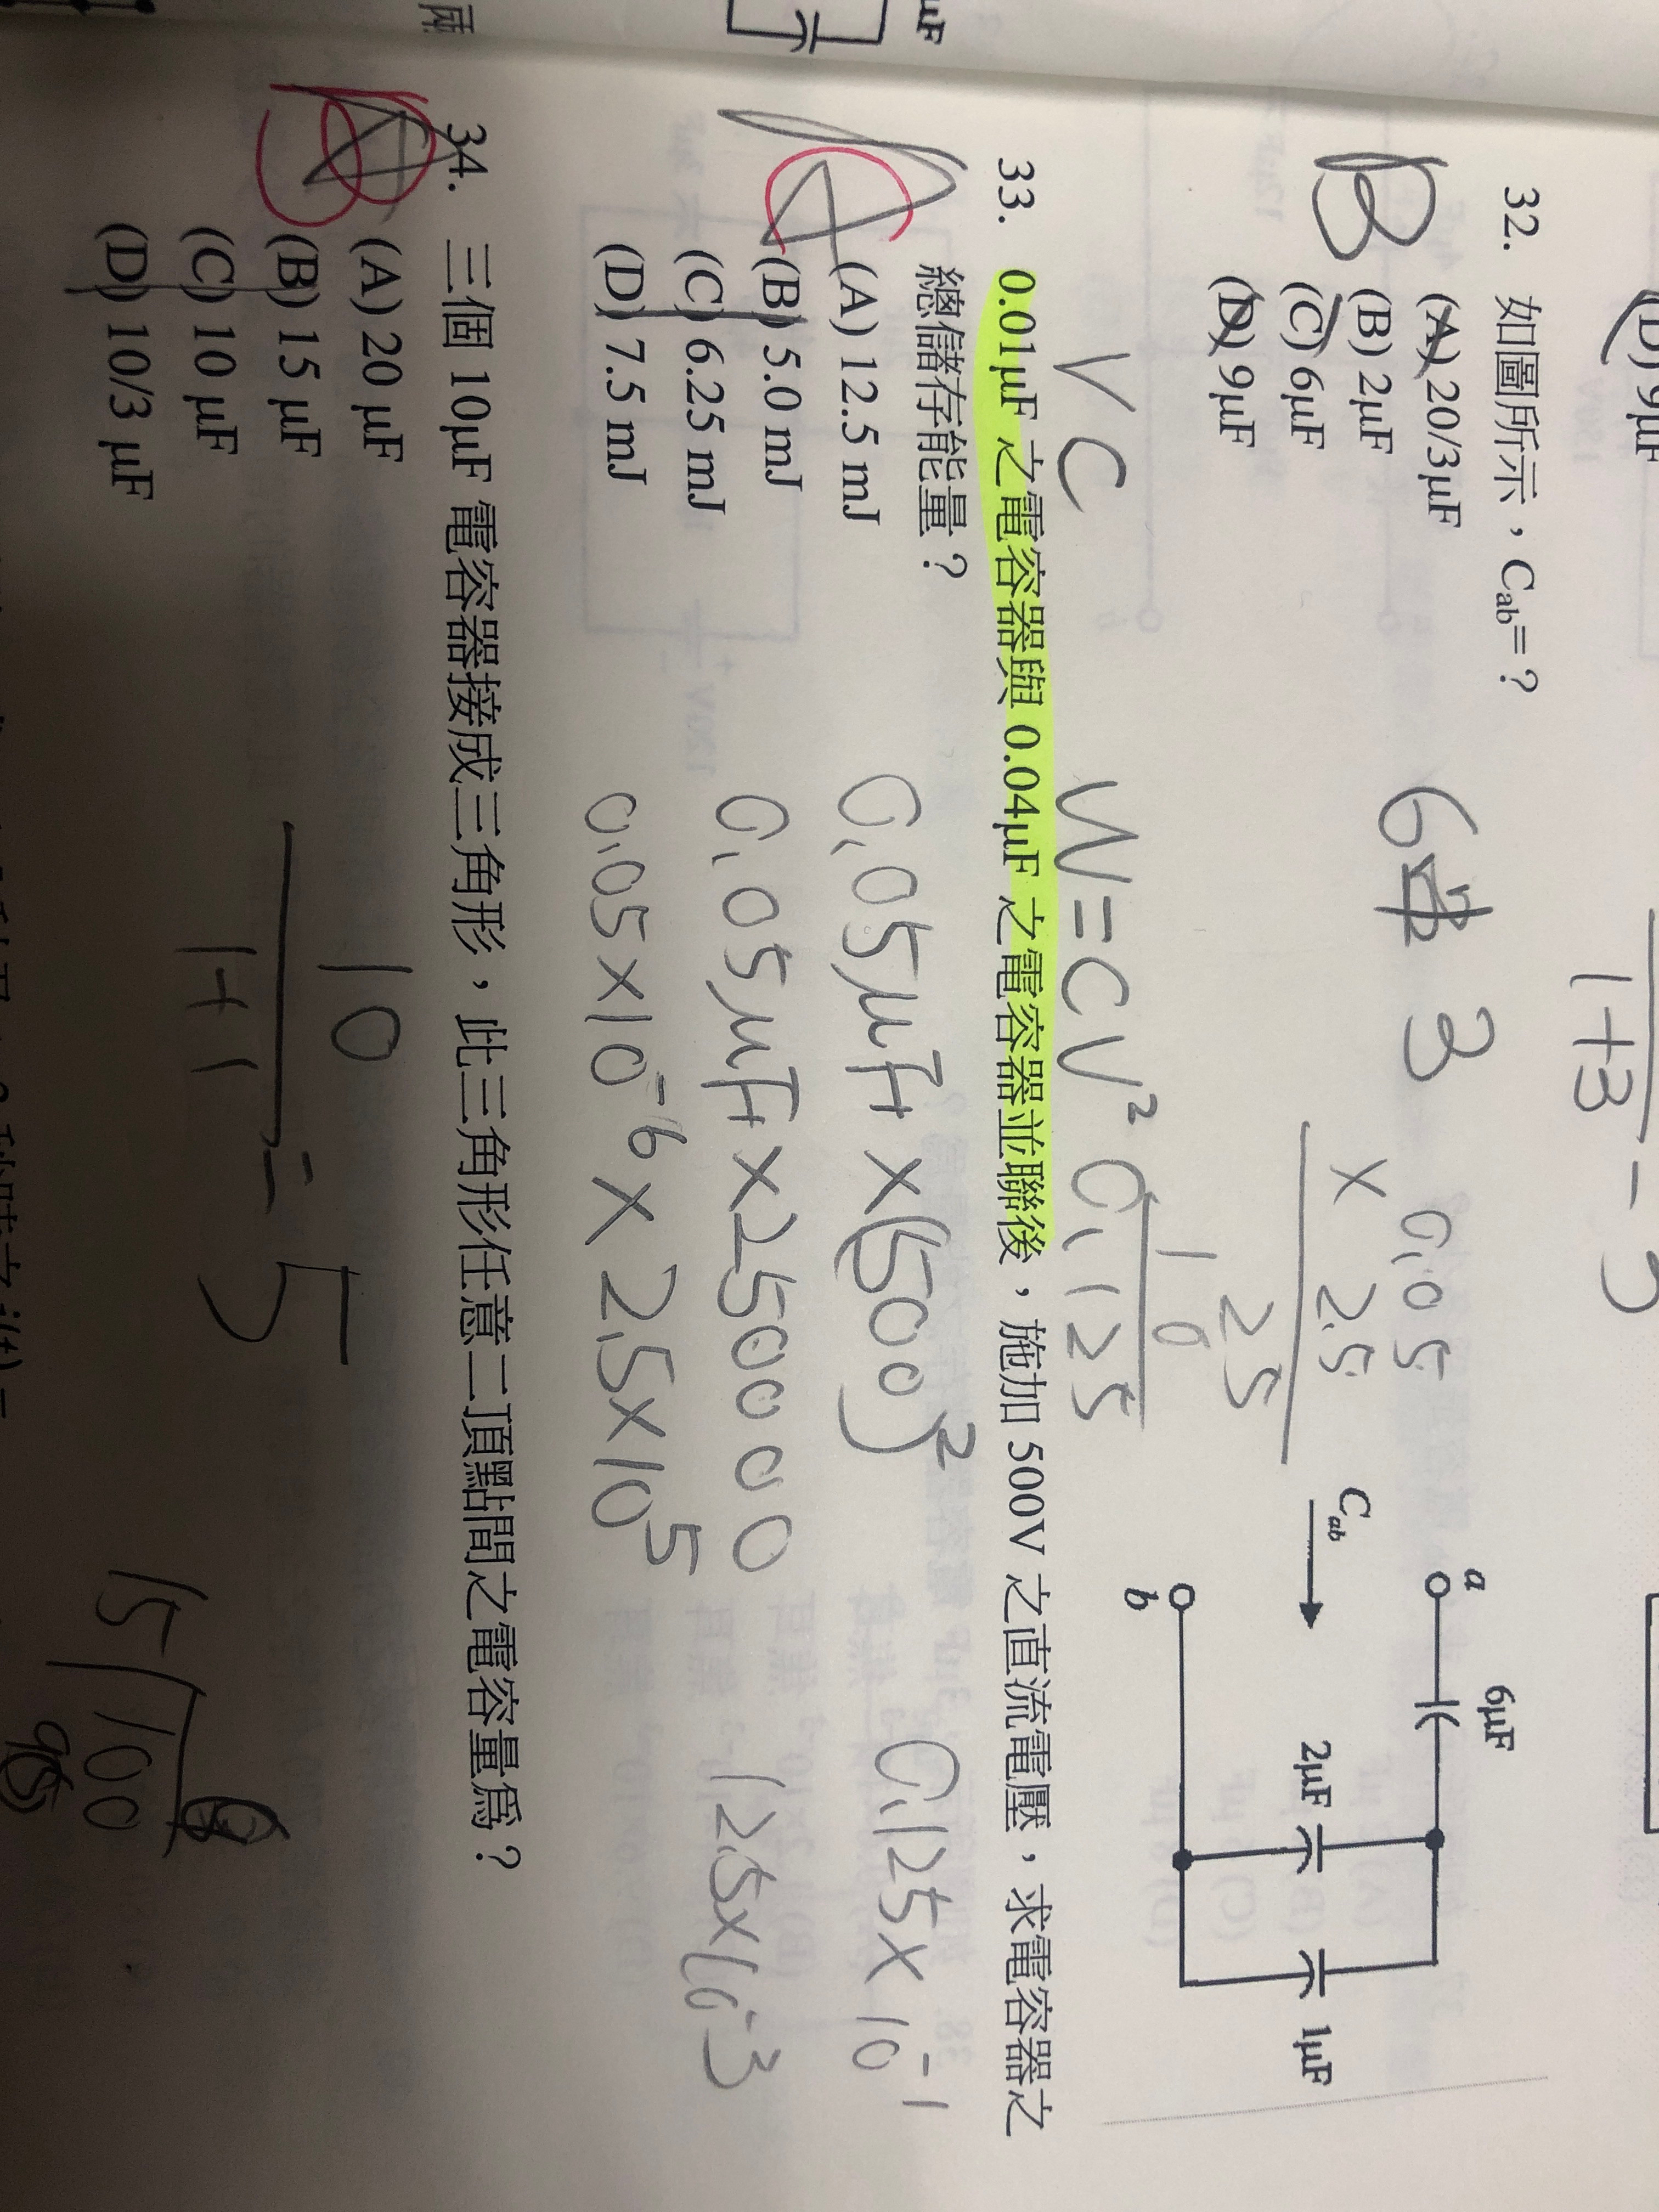 (D) 9μF
1+3
32. 如圖所示，Cab=？
(A) 20/3μF
(B) 2μF
(C) 6μF
(D) 9μF
B
6
3
0.05
× 2.5
25
10
0.125
Cab
a
b
6μF
2μF
1μF
V C
W=CV²
33. 0.01μF 之電容器與 0.04μF 之電容器並聯後，施加 500V 之直流電壓，求電容器之
總儲存能量？
(A) 12.5 mJ
(B) 5.0 mJ
(C) 6.25 mJ
(D) 7.5 mJ
0.05μF×(500)²
0.05μF×250000
0.05×10⁻⁶×2.5×10⁵
0.125×10⁻¹
12.5×10⁻³
34. 三個 10μF 電容器接成三角形，此三角形任意二頂點間之電容量為？
(A) 20 μF
(B) 15 μF
(C) 10 μF
(D) 10/3 μF
B
10
1+1
= 5
15
100
μF